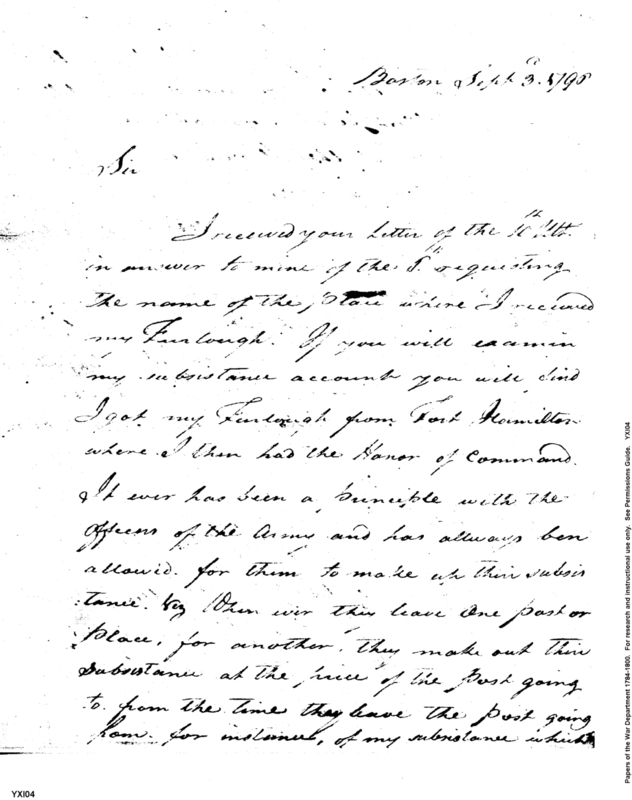 Boston Sept 3.d 1798
Sir
I received your Letter of the 10th Ulto
in answer to mine of the 8th requesting
the name of the place where I received
my Furlough. If you will examin
my subsistance account you will find
I got my Furlough from Fort Hamilton
where I then had the Honor of Command.
It ever has been a principle with the
officers of the Army and has allways ben
allowed. for them to make up thier subsis
tance. Viz When ever they leave One post or
Place, for another, they make out thier
Subsistance at the price of the Post going
to. from the time they leave the Post going
from. for instance, of my subsistance which
YXI04
Papers of the War Department 1784-1800. For research and instructional use only. See Permissions Guide. YXI04